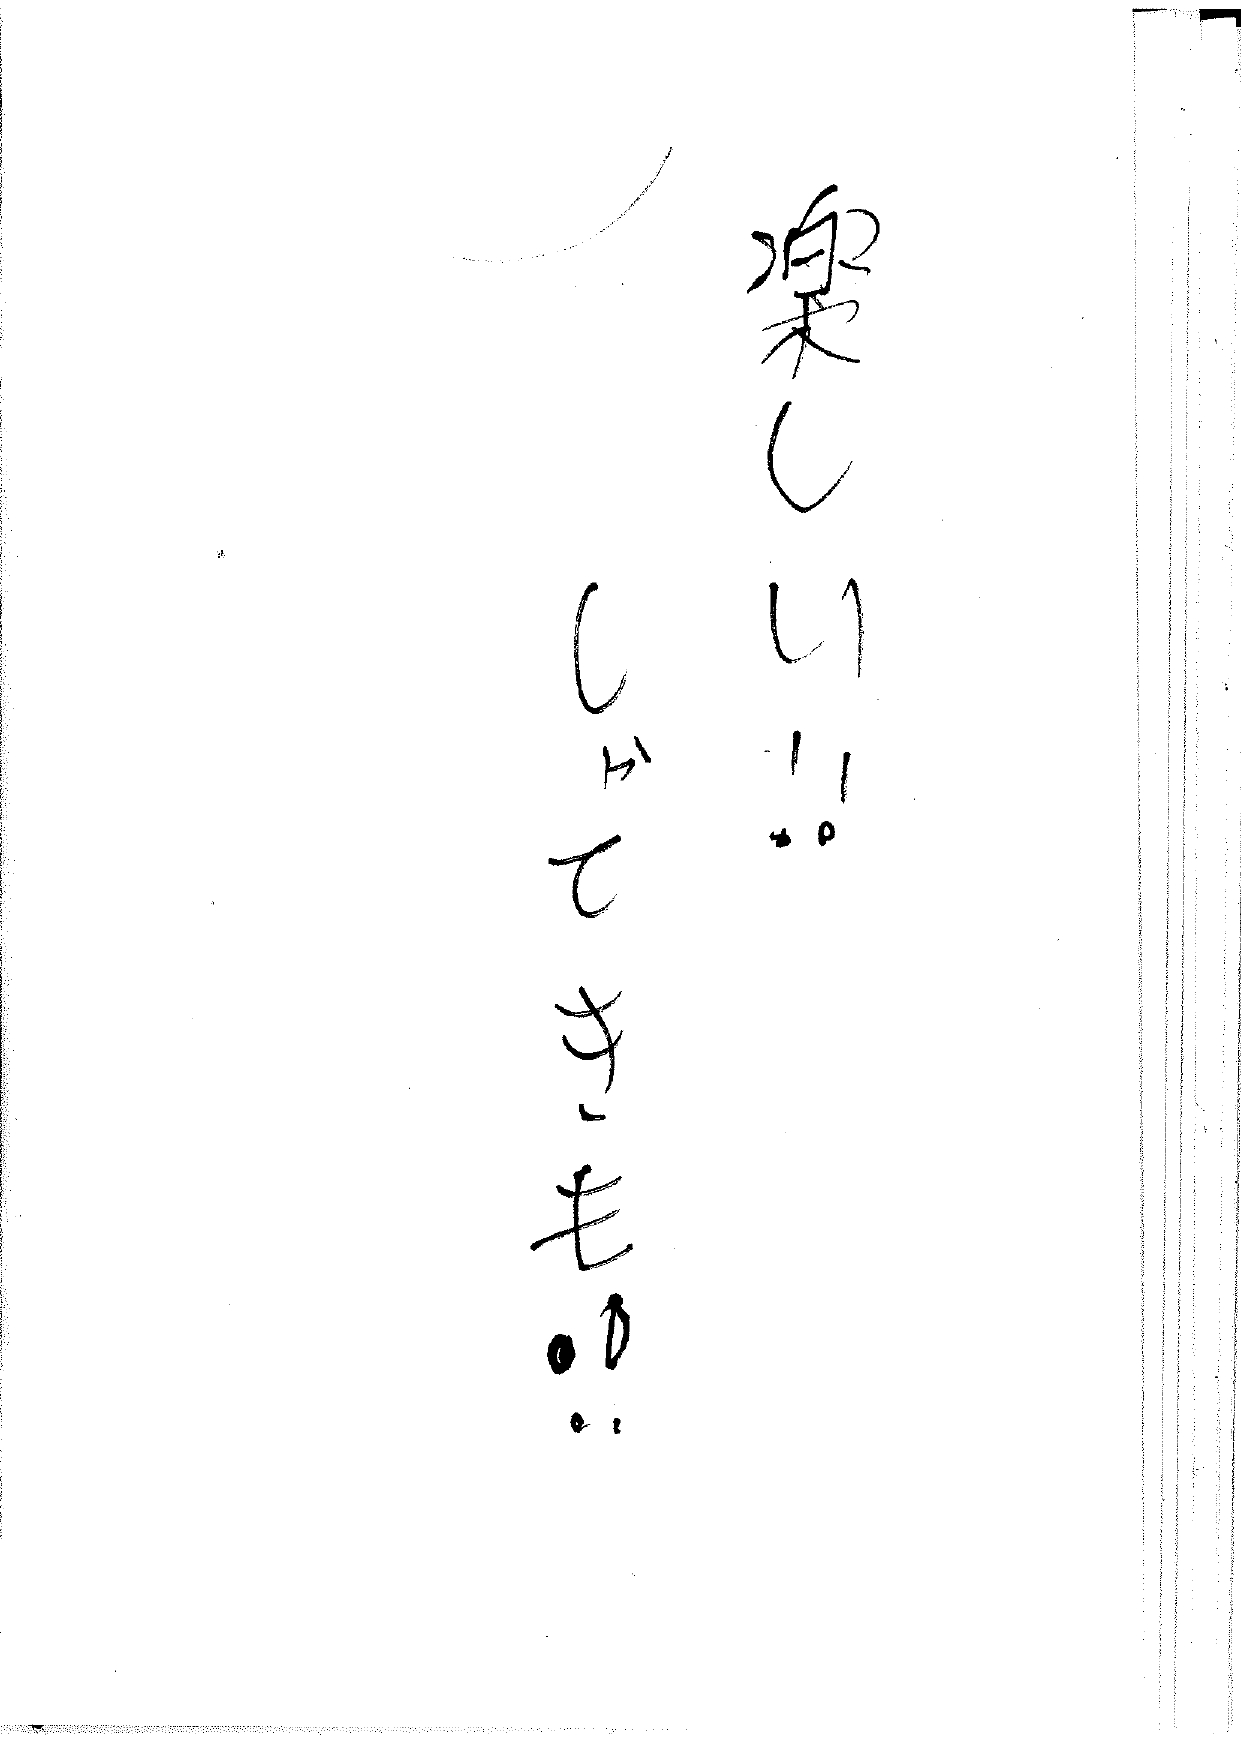 楽しい!!
しゃてきも!!